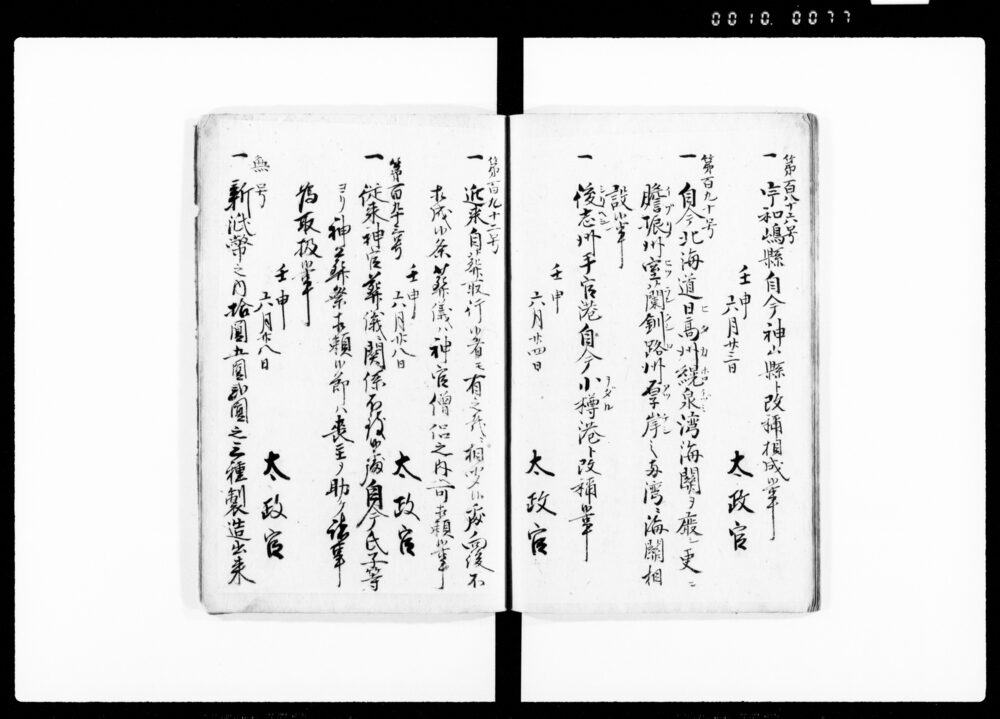 0010 0077
第百八十六号
一 宇和嶋縣自今神山縣ト改稱相成候事
壬申
六月廿三日
太政官
第百九十号
一 自今北海道日高州幌泉湾海關ヲ廢シ更ニ
膽振州室蘭釧路州厚岸之両湾ニ海關相
設候事
一 後志州手宮港自今小樽港ト改稱候事
ヲタル
壬申
六月廿四日
太政官
第百九十二号
一 近来自葬取行候者モ有之哉ニ相聞ヘ候處向後不
相成候条葬儀ハ神官僧侶之内ヘ可相頼候事
第百九十三号
壬申
六月廿八日
太政官
一 従来神官葬儀ニ関係不致候處自今氏子等
ヨリ神葬祭相頼候節ハ喪主ヲ助ケ諸事
為取扱候事
壬申
六月廿八日
太政官
無号
一 新紙幣之内拾圓五圓弐圓之三種製造出来